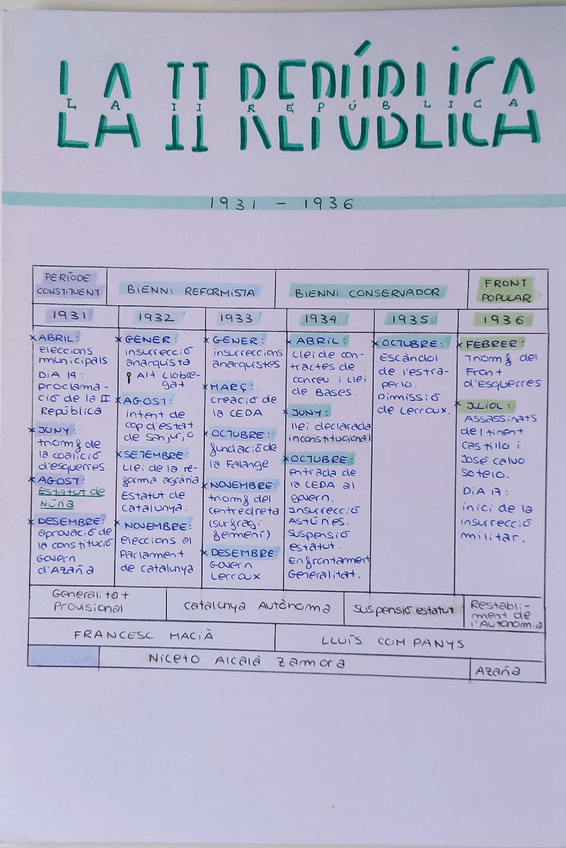 LA II REPÚBLICA
LA II REPÚBLICA
1931 - 1936
PERÍODE
CONSTITUENT
BIENNI REFORMISTA
BIENNI CONSERVADOR
FRONT
POPULAR
1931
1932
1933
1934
1935
1936
x ABRIL:
eleccions
municipals
DIA 14:
proclama-
ció de la II
República
x JUNY:
triomf de
la coalició
d'esquerres
x AGOST:
Estatut de
Núria
x DESEMBRE:
aprovació de
la constitució
Govern
d'Azaña
x GENER:
insurrecció
anarquista
Alt Llobre-
gat
x AGOST:
intent de
cop d'estat
de Sanjurjo
x SETEMBRE:
Llei de la re-
forma agrària
Estatut de
Catalunya.
x NOVEMBRE:
eleccions al
Parlament
de Catalunya
x GENER:
insurreccions
anarquistes
x MARÇ:
creació de
la CEDA
x OCTUBRE:
fundació de
la Falange
x NOVEMBRE:
triomf del
centredreta
(sufragi
femení)
x DESEMBRE:
Govern
Lerroux
x ABRIL:
Llei de con-
tractes de
conreu i llei
de Bases.
x JUNY:
llei declarada
inconstitucional
x OCTUBRE:
entrada de
la CEDA al
govern.
Insurrecció
Astúries.
Suspensió
estatut.
Enfrontament
Generalitat.
x OCTUBRE:
Escàndol
de l'estra-
perlo.
Dimissió
de Lerroux.
x FEBRER:
Triomf del
Front
d'Esquerres
x JULIOL:
Assassinats
del tinent
Castillo i
José Calvo
Sotelo.
DIA 17:
inici de la
insurrecció
militar.
Generalitat
Provisional
Catalunya Autònoma
Suspensió estatut
Restabli-
ment de
l'Autonomia
FRANCESC MACIÀ
LLUÍS COMPANYS
Niceto Alcalá Zamora
Azaña